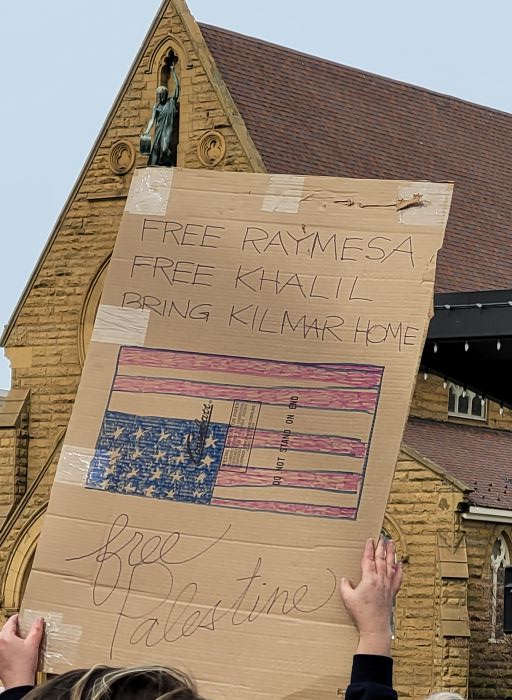 FREE RAYMESA
FREE KHALIL
BRING KILMAR HOME
DO NOT STAND ON END
free
Palestine